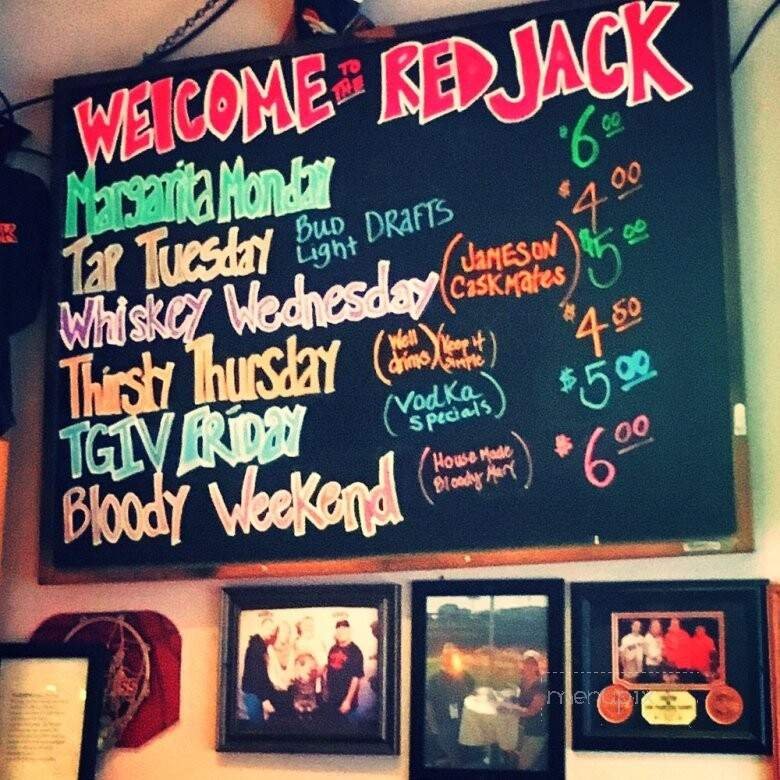 WELCOME TO THE RED JACK
Margarita Monday $6.00
Tap Tuesday Bud Light DRAFTS $4.00
Whiskey Wednesday (JAMESON Caskmates) $5.00
Thirsty Thursday (Well drinks)(Keep it simple) $4.50
TGIV FRIDAY (Vodka Specials) $5.00
Bloody Weekend (House Made Bloody Mary) $6.00
menupix